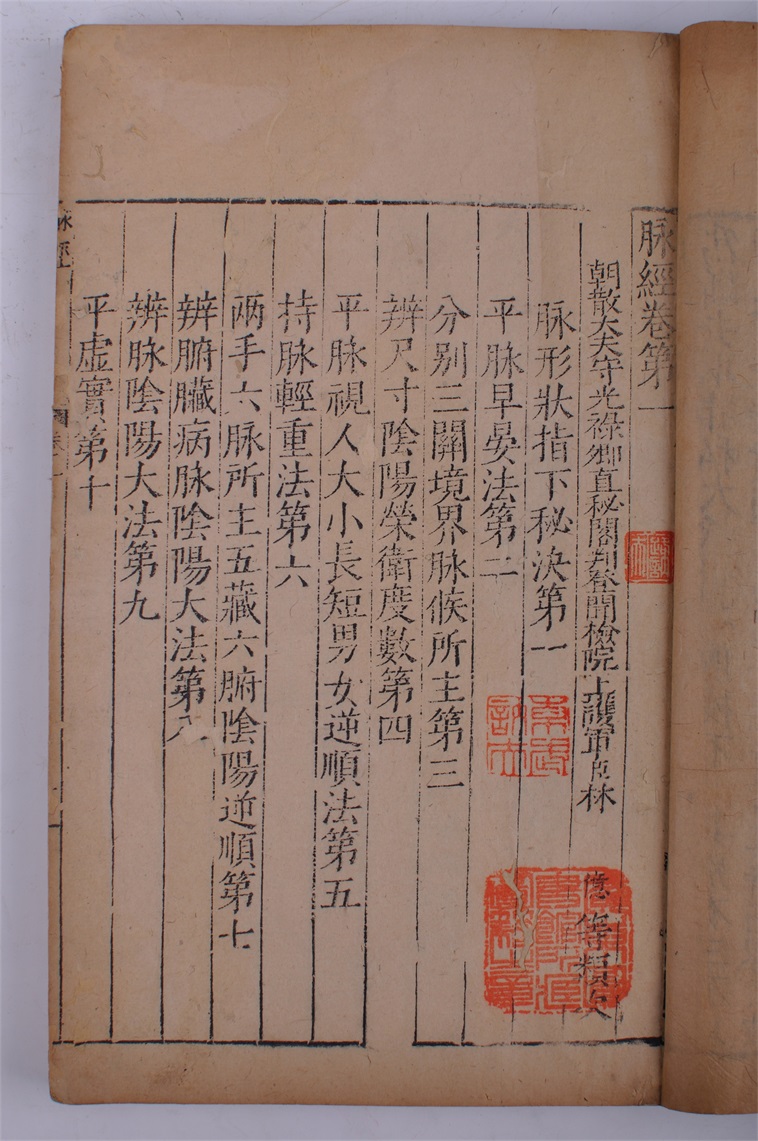 脉經卷第一
朝散大夫守光祿卿直秘閣判登聞檢院上護軍臣林
億等類次
脉形狀指下秘決第一
平脉早晏法第二
分别三關境界脉候所主第三
辨尺寸陰陽榮衛度數第四
平脉視人大小長短男女逆順法第五
持脉輕重法第六
兩手六脉所主五藏六腑陰陽逆順第七
辨腑臟病脉陰陽大法第八
辨脉陰陽大法第九
平虛實第十
脉經
卷一